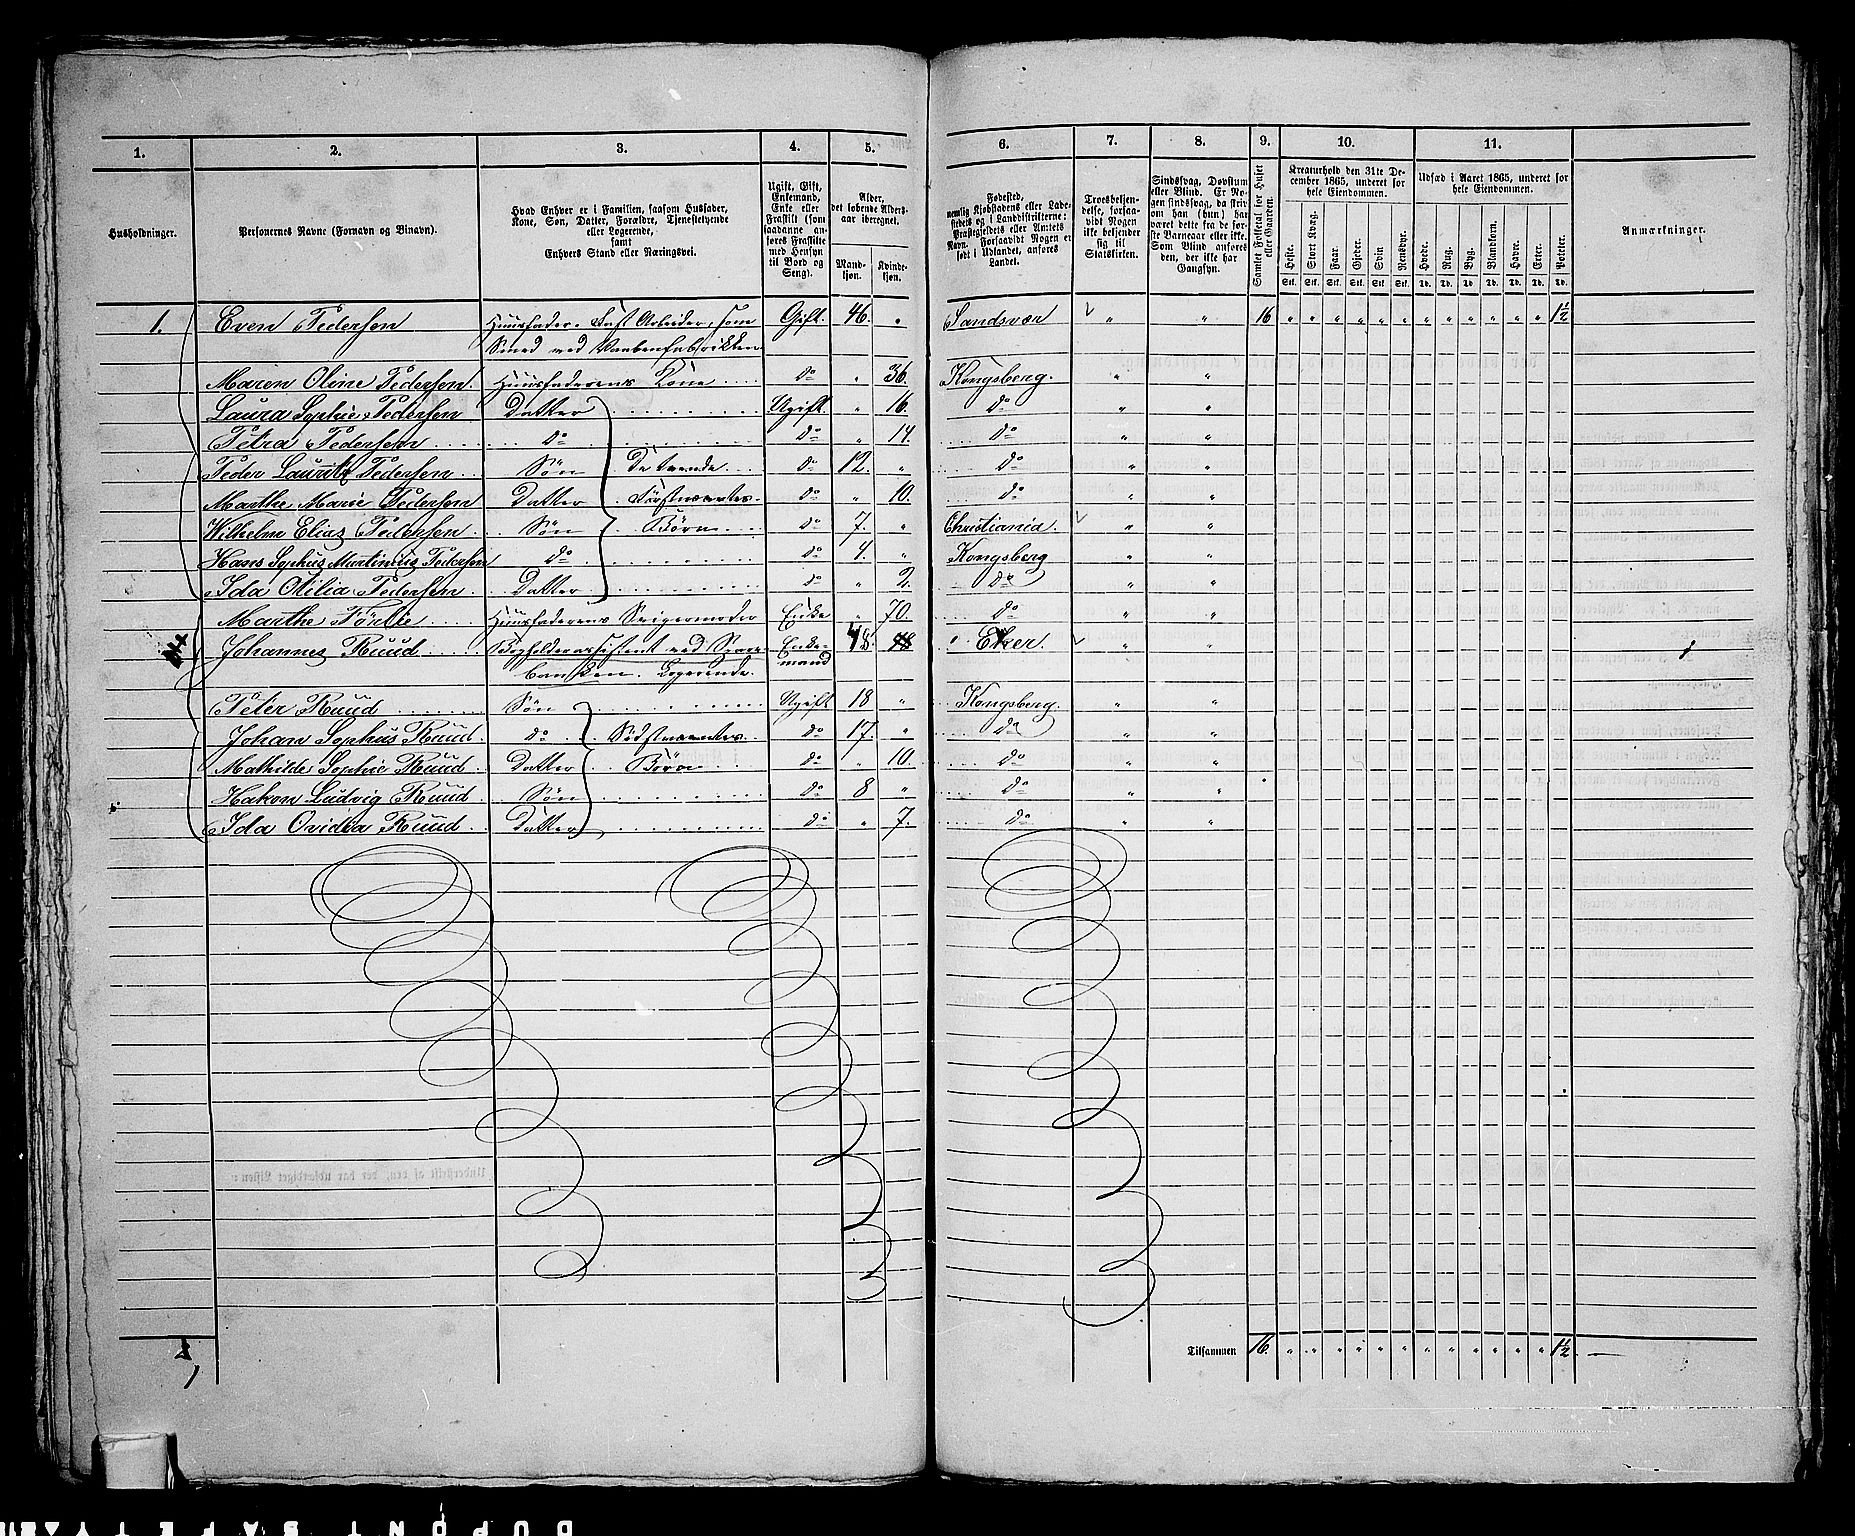 1. 2. 3. 4. 5. 6. 7. 8. 9. 10. 11.
Husholdninger.
Personernes Navne (Fornavn og Binavn).
Hvad Enhver er i Familien, saasom Husfader,
Kone, Søn, Datter, Forældre, Tjenestetyende
eller Logerende,
samt
Enhvers Stand eller Næringsvei.
Ugift, Gift,
Enkemand,
Enke eller
Fraskilt (som
saadanne an-
føres Fraskilte
med Hensyn
til Bord og
Seng).
Alder,
det løbende Alders-
aar iberegnet.
Mand-
kjøn.
Kvinde-
kjøn.
Fødested,
nemlig Kjøbstadens eller Lade-
stedets og i Landdistrikterne:
Præstegjeldets eller Amtets
Navn. Forsaavidt Nogen er
født i Udlandet, anføres
Landet.
Troesbekjen-
delse, forsaa-
vidt Nogen
ikke bekjender
sig til
Statskirken.
Sindssvag, Døvstum
eller Blind. Er No-
gen sindssvag, da skriv
om han (hun) har
været dette fra de før-
ste Barneaar eller ikke.
Som Blind anføres
den, der ikke har
Gangsyn.
Samlet Folketal for Huset
eller Gaarden.
Kreaturhold den 31te De-
cember 1865, underet for
hele Eiendommen.
Heste. Stort Kvæg. Faar. Gjeder. Svin. Rensdyr.
Stk. Stk. Stk. Stk. Stk. Stk.
Udsæd i Aaret 1865, underet for
hele Eiendommen.
Hvede. Rug. Byg. Blandkorn. Havre. Erter. Poteter.
Td. Td. Td. Td. Td. Td. Td.
Anmærkninger.
1. Even Pedersen Huusfader. Fast Arbeider, som Gift. 46. " Sandsvær " " 16 " " " " " " " " " " " " 1½
Smed ved Vaabenfabrikken
Maren Oline Pedersen. Huusfaderens Kone do " 36. Kongsberg. " "
Laura Sophie Pedersen Datter Ugift. " 16. do " "
Petra Pedersen do do " 14. do " "
Peder Lauritz Pedersen Søn De tvende do 12. " do " "
Marthe Marie Pedersen Datter Førstnævntes do " 10. do " "
Wilhelm Elias Pedersen Søn Børn do 7. " Christiania " "
Hans Sophus Martinius Pedersen do do 4. " Kongsberg " "
Ida Otilia Pedersen Datter do " 2. do " "
Marthe Huusfaderens Svigermoder Enke " 70. do " "
Johannes Ruud Bogholderassistent ved Spare- Enke- 48. 48 Eker. " "
banken. Logerende. mand
Peter Ruud Søn Ugift 18 " Kongsberg. " "
Johan Sophus Ruud. do Sidstnævntes do 17. " do " "
Mathilde Sophie Ruud Datter Børn do " 10. do " "
Hakon Ludvig Ruud Søn do 8 " do " "
Ida Ovidia Ruud Datter do " 7. do " "
2
1
Tilsammen 16. " " " " " " " " " " " " 1½